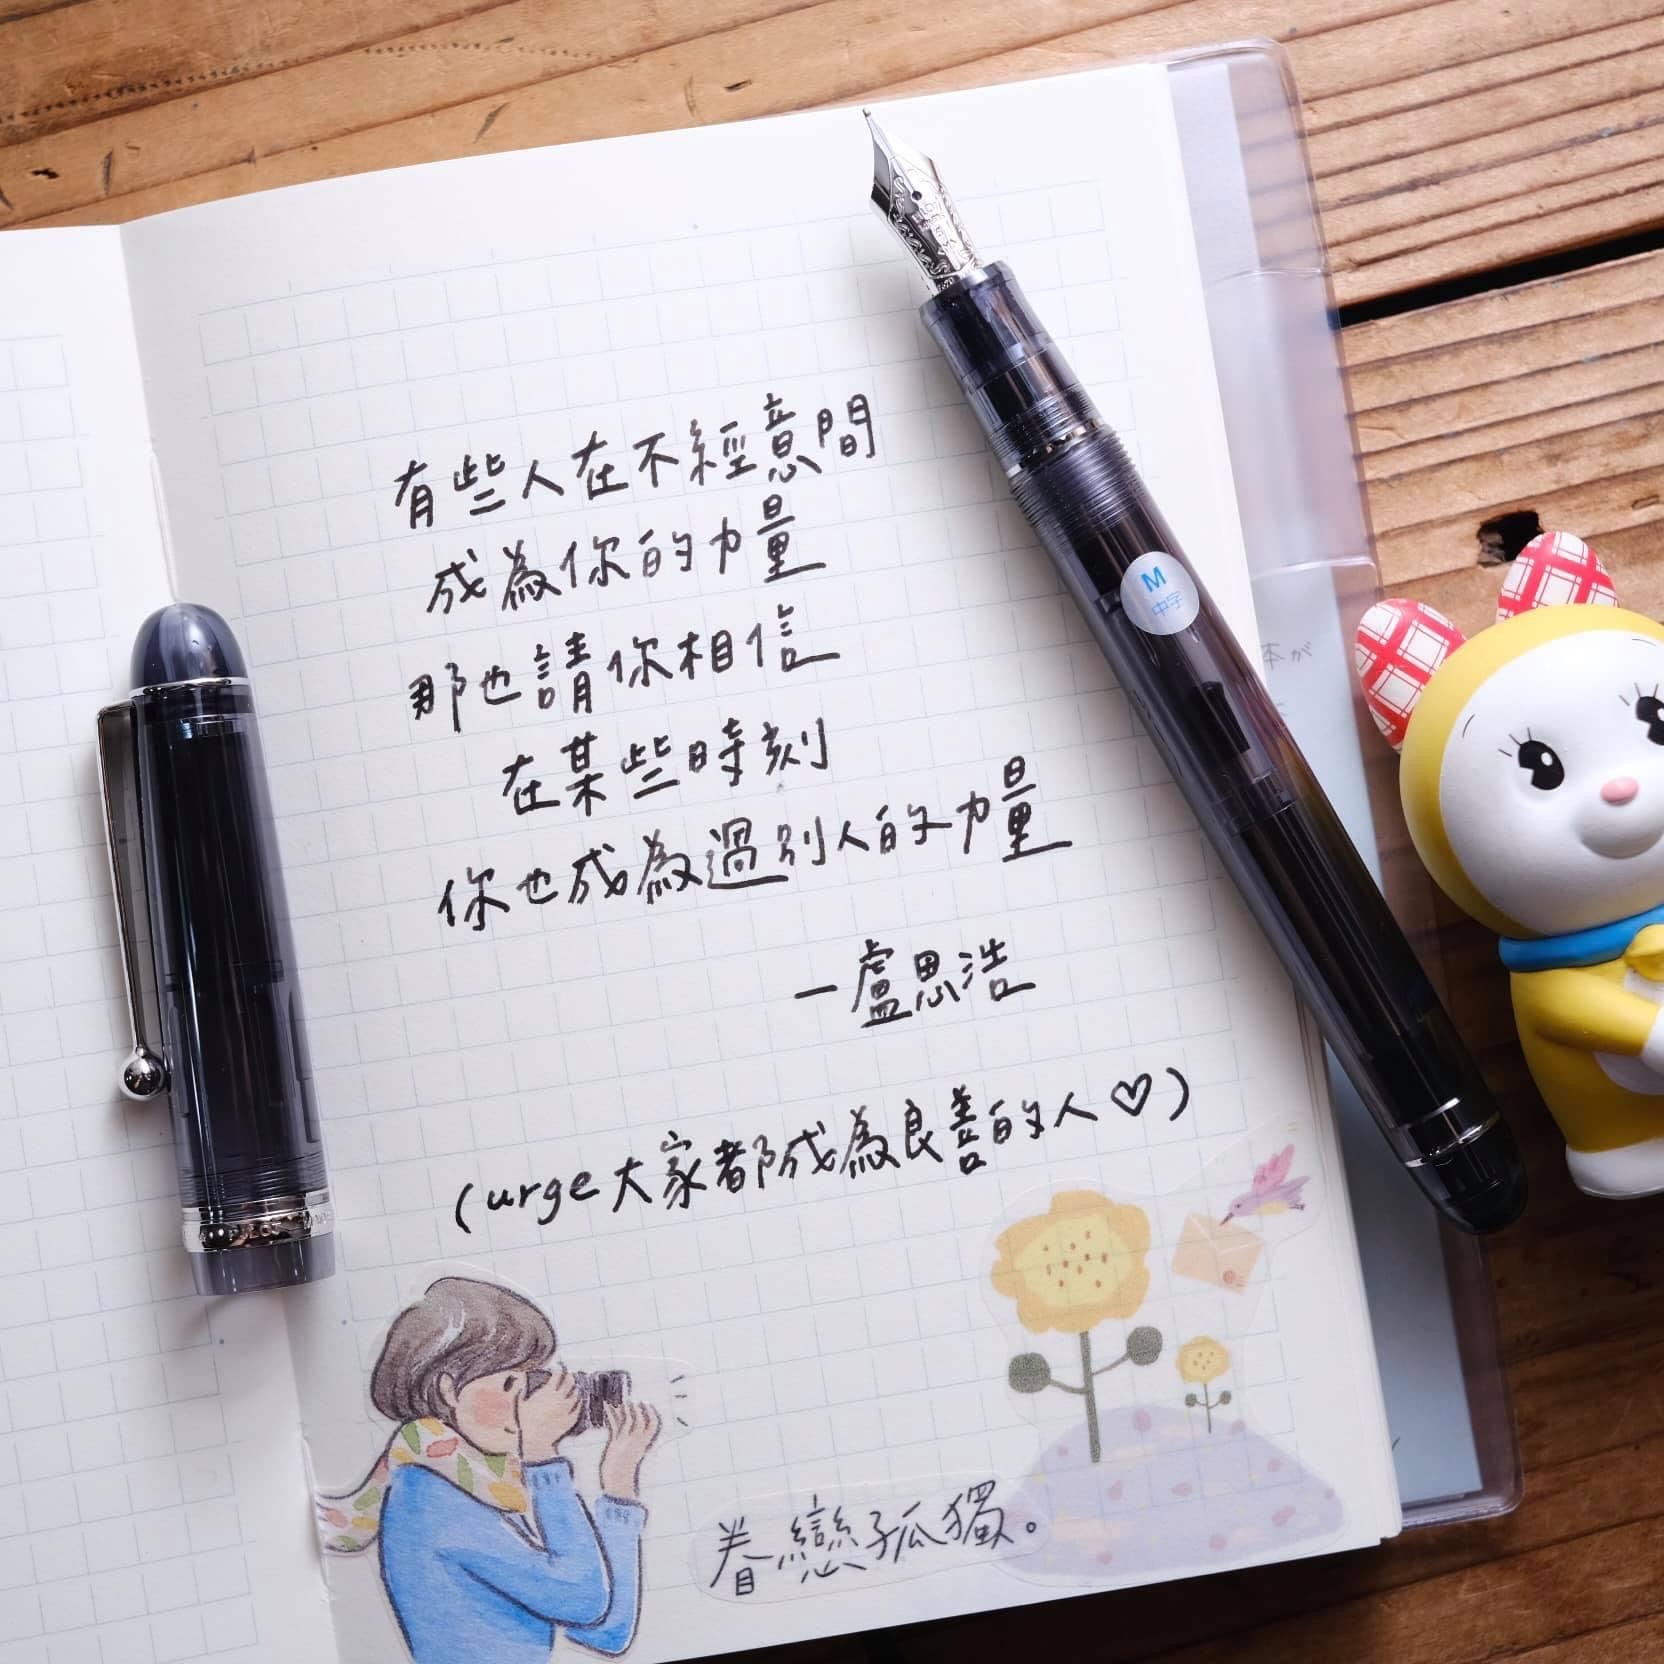 有些人在不經意間
成為你的力量
那也請你相信
在某些時刻
你也成為過別人的力量
—盧思浩
(urge大家都成為良善的人♡)
眷戀孤獨。
M
中字
本が
PILOT